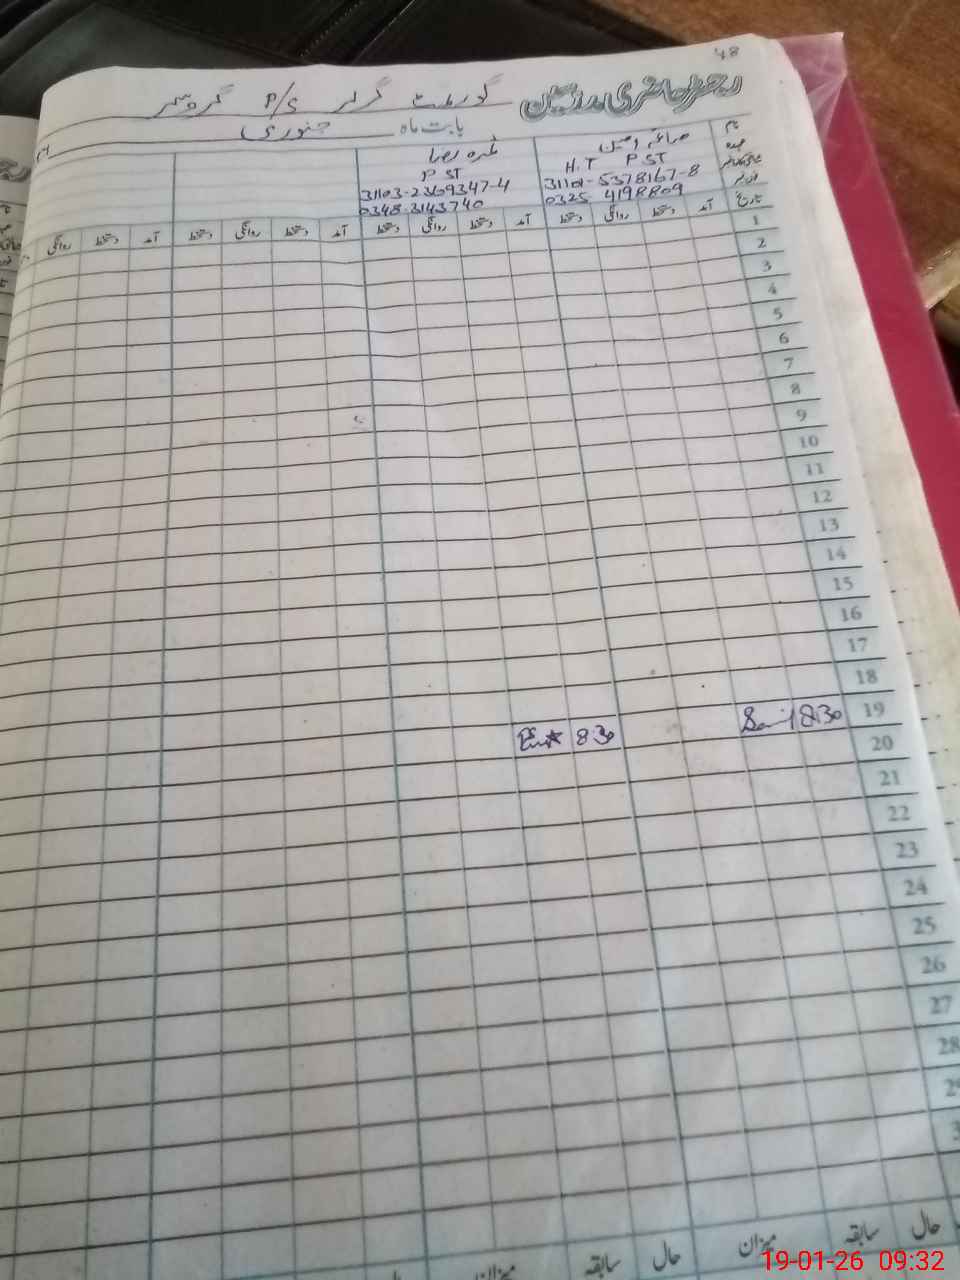 48
رجسٹر حاضری مدرسین گورنمنٹ گرلز P/S
بابت ماہ جنوری
نام
عہدہ H.T PST
31101-5378167-8
0325 4198809
PST
31103-2369347-4
0348-3143740
تاریخ آمد دستخط روانگی دستخط آمد دستخط روانگی دستخط آمد دستخط روانگی دستخط آمد دستخط روانگی
1
2
3
4
5
6
7
8
9
10
11
12
13
14
15
16
17
18
19 8:30
8:30
20
21
22
23
24
25
26
27
28
حال سابقہ میزان حال سابقہ میزان
19-01-26 09:32